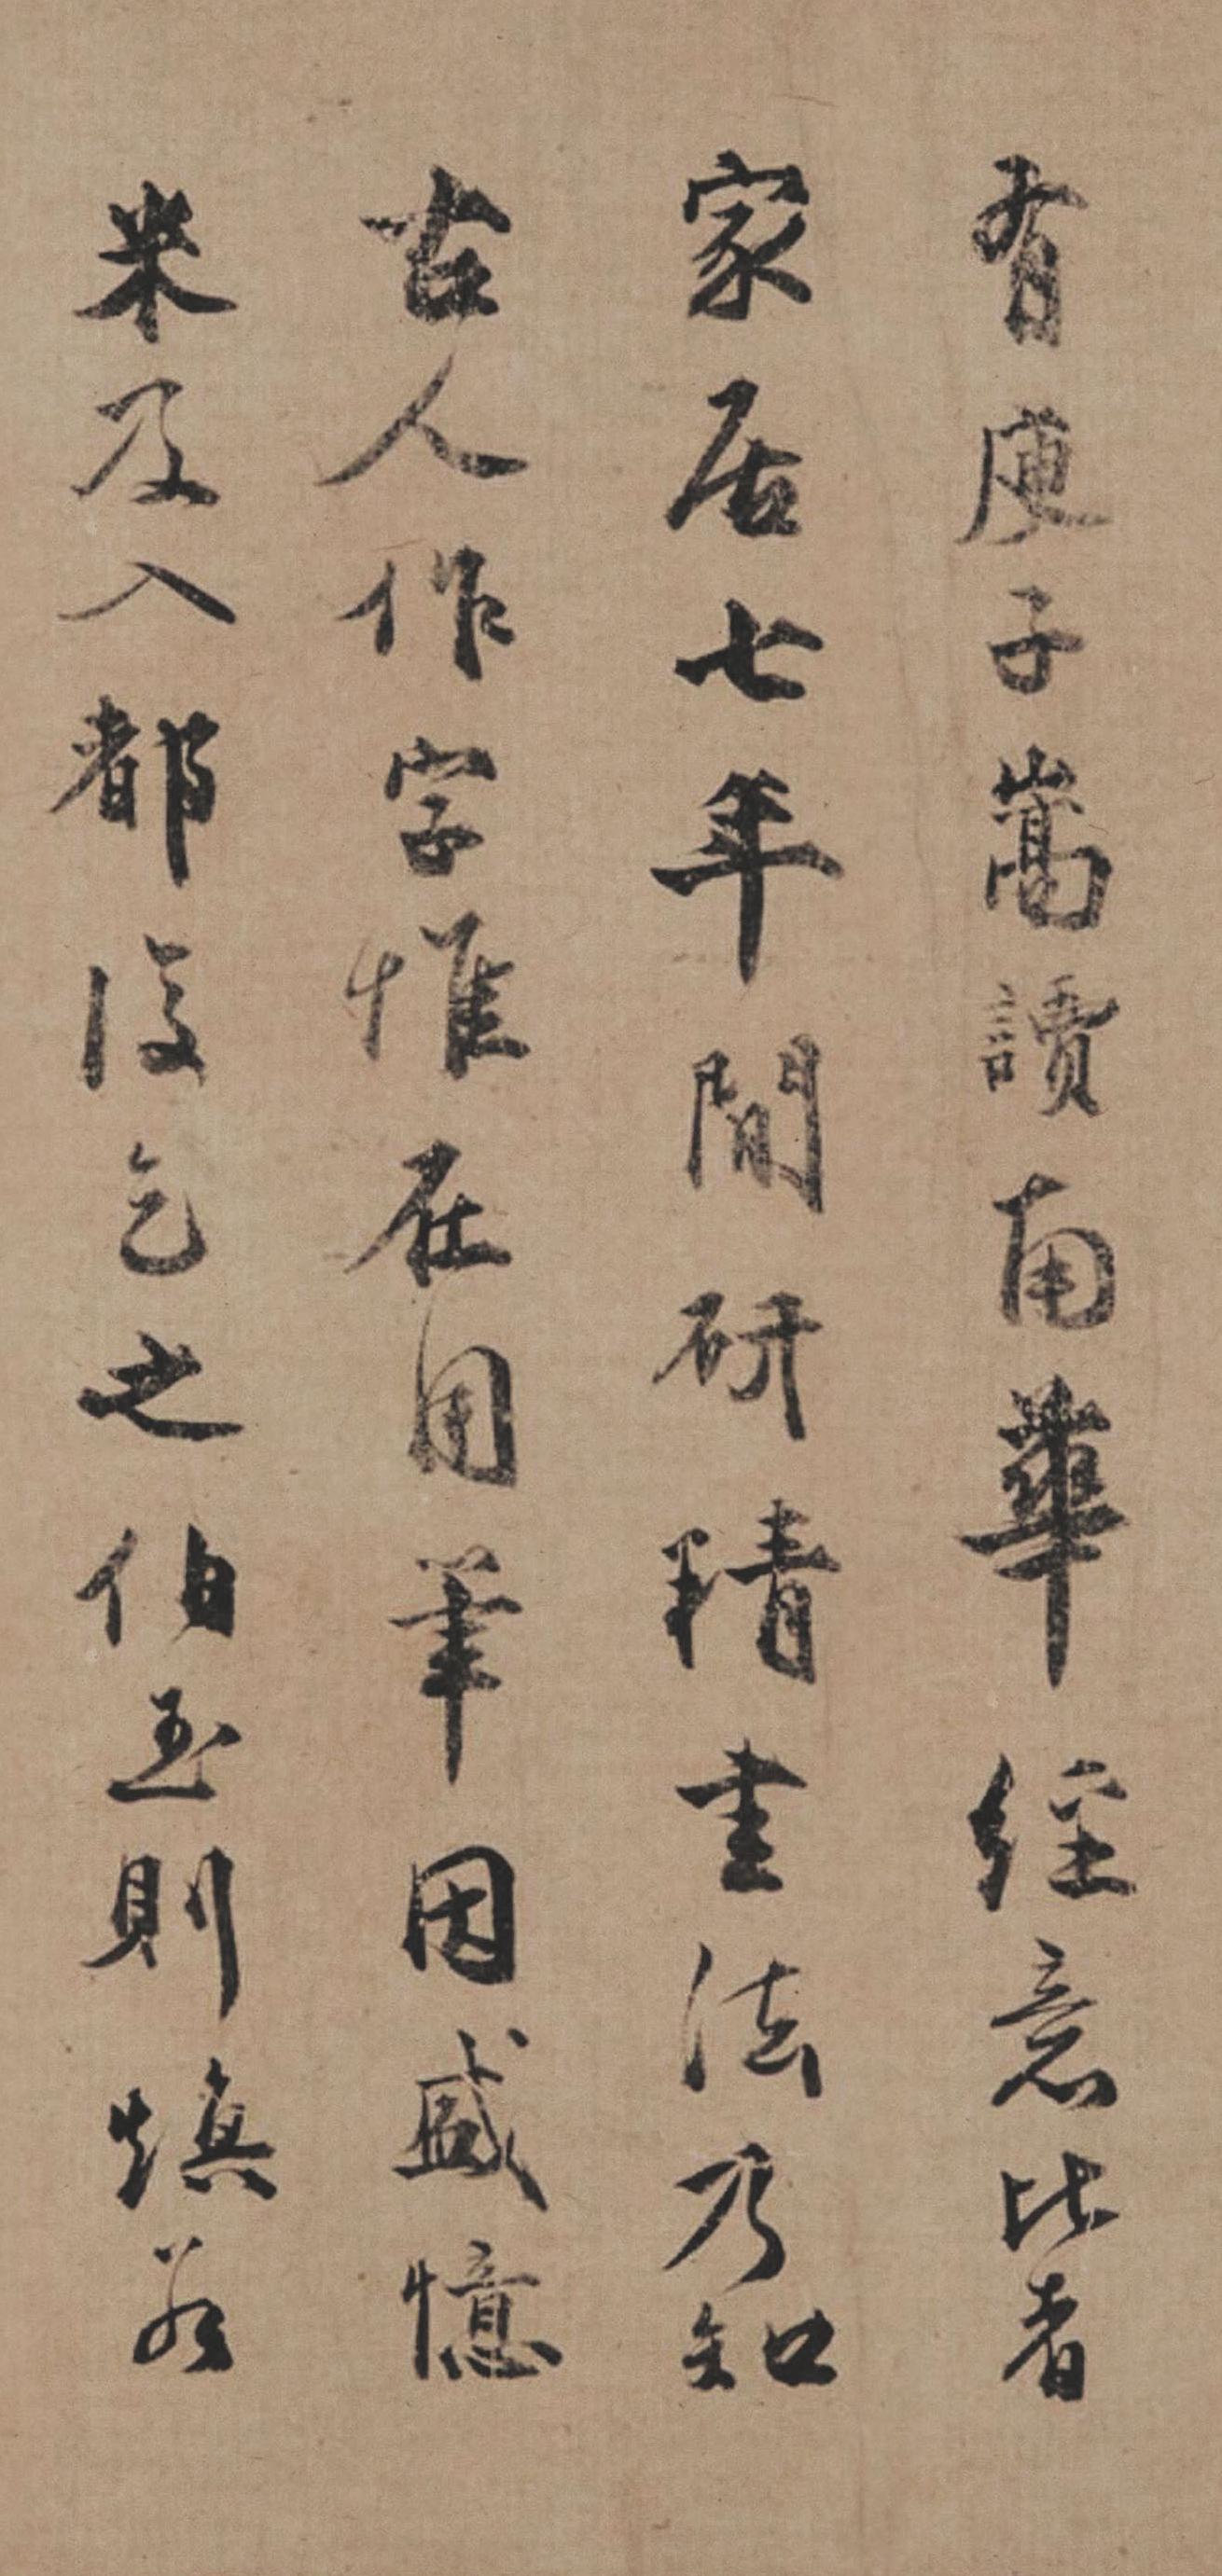 有庾子嵩讀南華經意比者
家居七年間研精書法乃知
古人作字惟在用筆因盛憶
米及入都復乞之伯玉則煥若